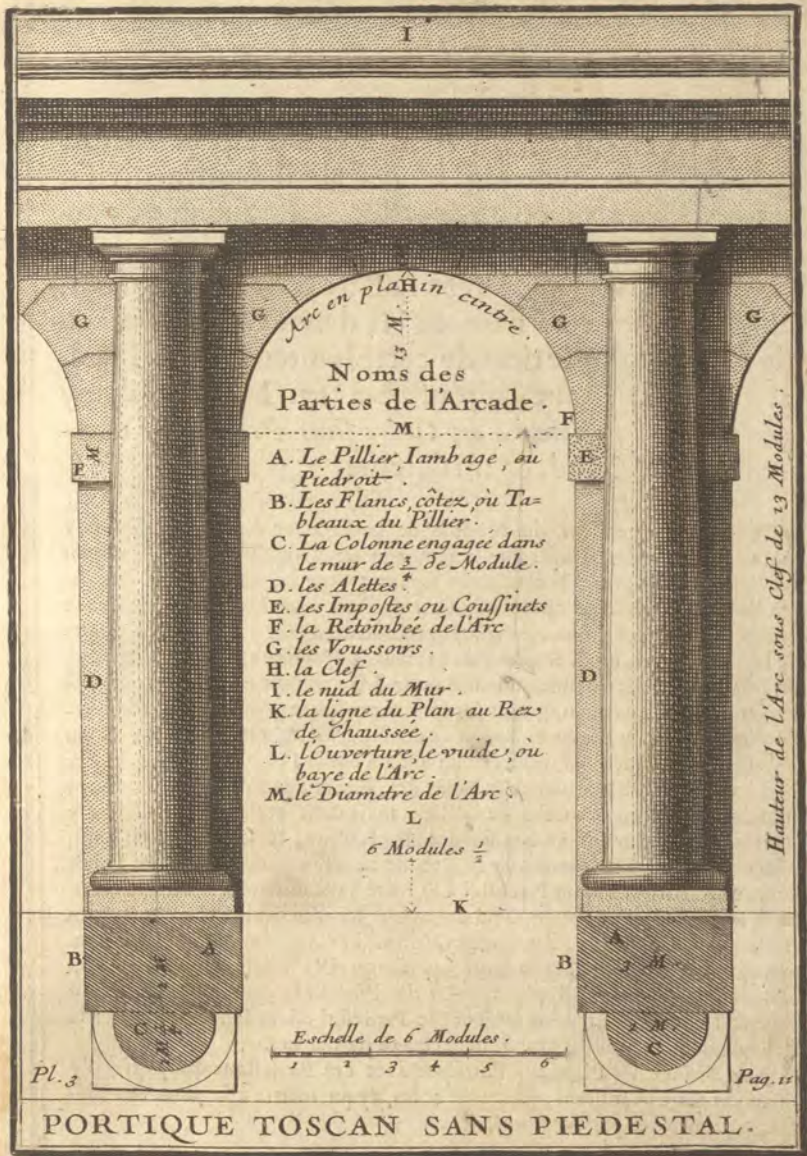 I
G
G
G
G
Arc en plaHin cintre.
13 M.
Noms des
Parties de l'Arcade.
F
M
E
M
E
A. Le Pillier, Iambage, où
Piedroit.
B. Les Flancs, côtez, où Ta=
bleaux du Pillier.
C. La Colonne engageé dans
le mur de 3/4 de Module.
D. les Alettes.
E. les Impostes ou Coussinets
F. la Retombée de l'Arc
G. les Voussoirs.
H. la Clef.
I. le nud du Mur.
K. la ligne du Plan au Rez
de Chaussée.
L. l'Ouverture, le vuide, où
baye de l'Arc.
M. le Diametre de l'Arc.
D
D
L
6 Modules 1/2
K
Hauteur de l'Arc sous Clef de 13 Modules.
B
A
B
A
3 M.
C
2 M.
C
Eschelle de 6 Modules.
1 2 3 4 5 6
Pl. 3
Pag. 11
PORTIQUE TOSCAN SANS PIEDESTAL.